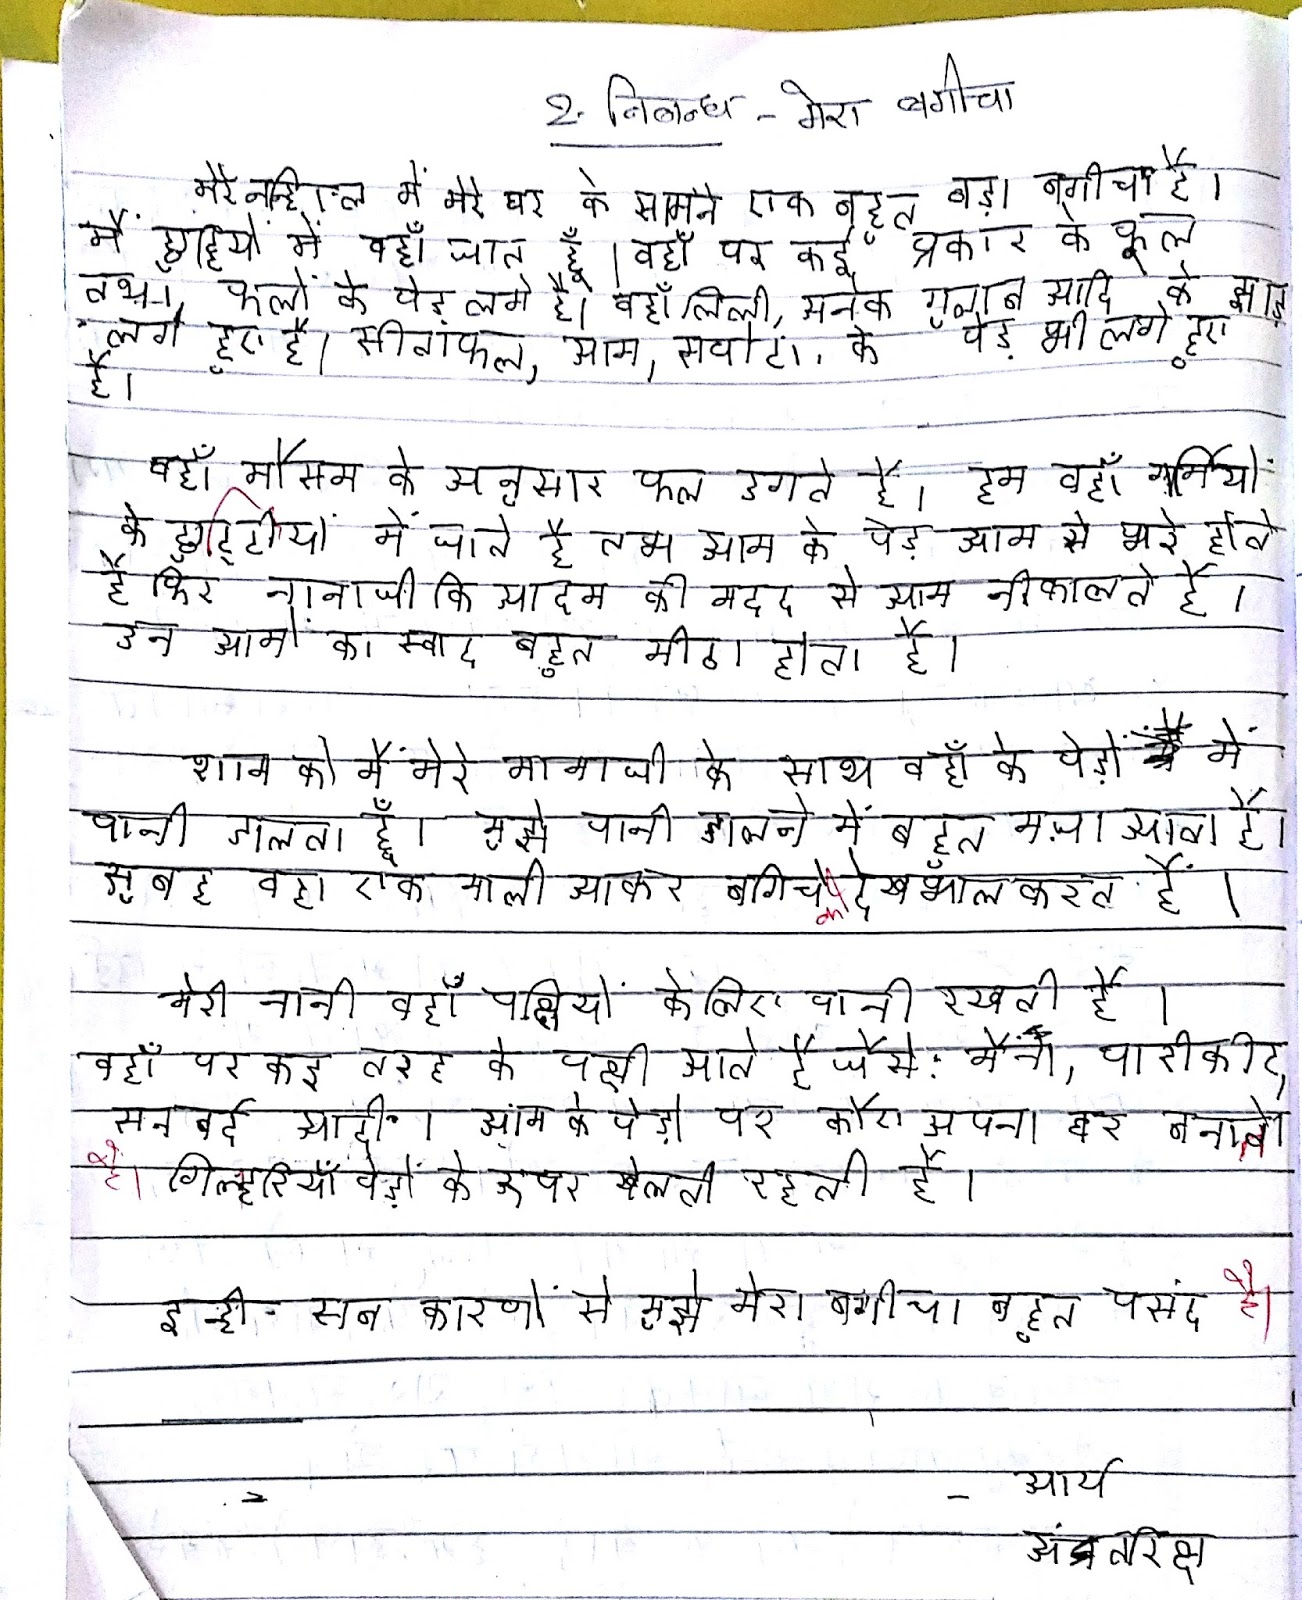 2. निबन्ध - मेरा बगीचा
मेरे ननिहाल में मेरे घर के सामने एक बहुत बड़ा बगीचा है।
मैं छुट्टियों में वहाँ जात हूँ। वहाँ पर कई प्रकार के फूल
तथा फलों के पेड़ लगे है। वहाँ लिली, अनेक गुलाब आदि के झाड़
लगे हुए है। सीताफल, आम, सपोटा के पेड़ भी लगे हुए
है।
वहाँ मौसम के अनुसार फल उगते हैं। हम वहाँ गर्मियों
के छुट्टीयों में जाते है तब आम के पेड़ आम से भरे होते
है फिर नानाजी कि आदम की मदद से आम नीकालते हैं।
उन आमों का स्वाद बहुत मीठा होता है।
शाम को मैं मेरे मामाजी के साथ वहाँ के पेड़ों में
पानी डालता हूँ। मुझे पानी डालने में बहुत मज़ा आता है।
सुबह वहा एक माली आकर बगिचे की देखभाल करत हैं।
मेरी नानी वहाँ पक्षियों के लिए पानी रखती हैं।
वहाँ पर कइ तरह के पक्षी आते है जैसे: मैना, पारीकीट,
सनबर्द आदी। आम के पेड़ो पर कौए अपना घर बनाते
है। गिल्हरियाँ पेड़ों के ऊपर खेलती रहती हैं।
इन्ही सब कारणों से मुझे मेरा बगीचा बहुत पसंद है।
- आर्य
अंतरिक्ष